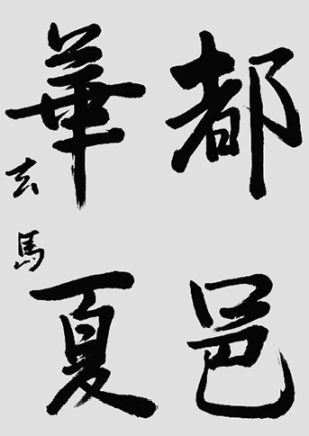 都邑
華夏
玄馬